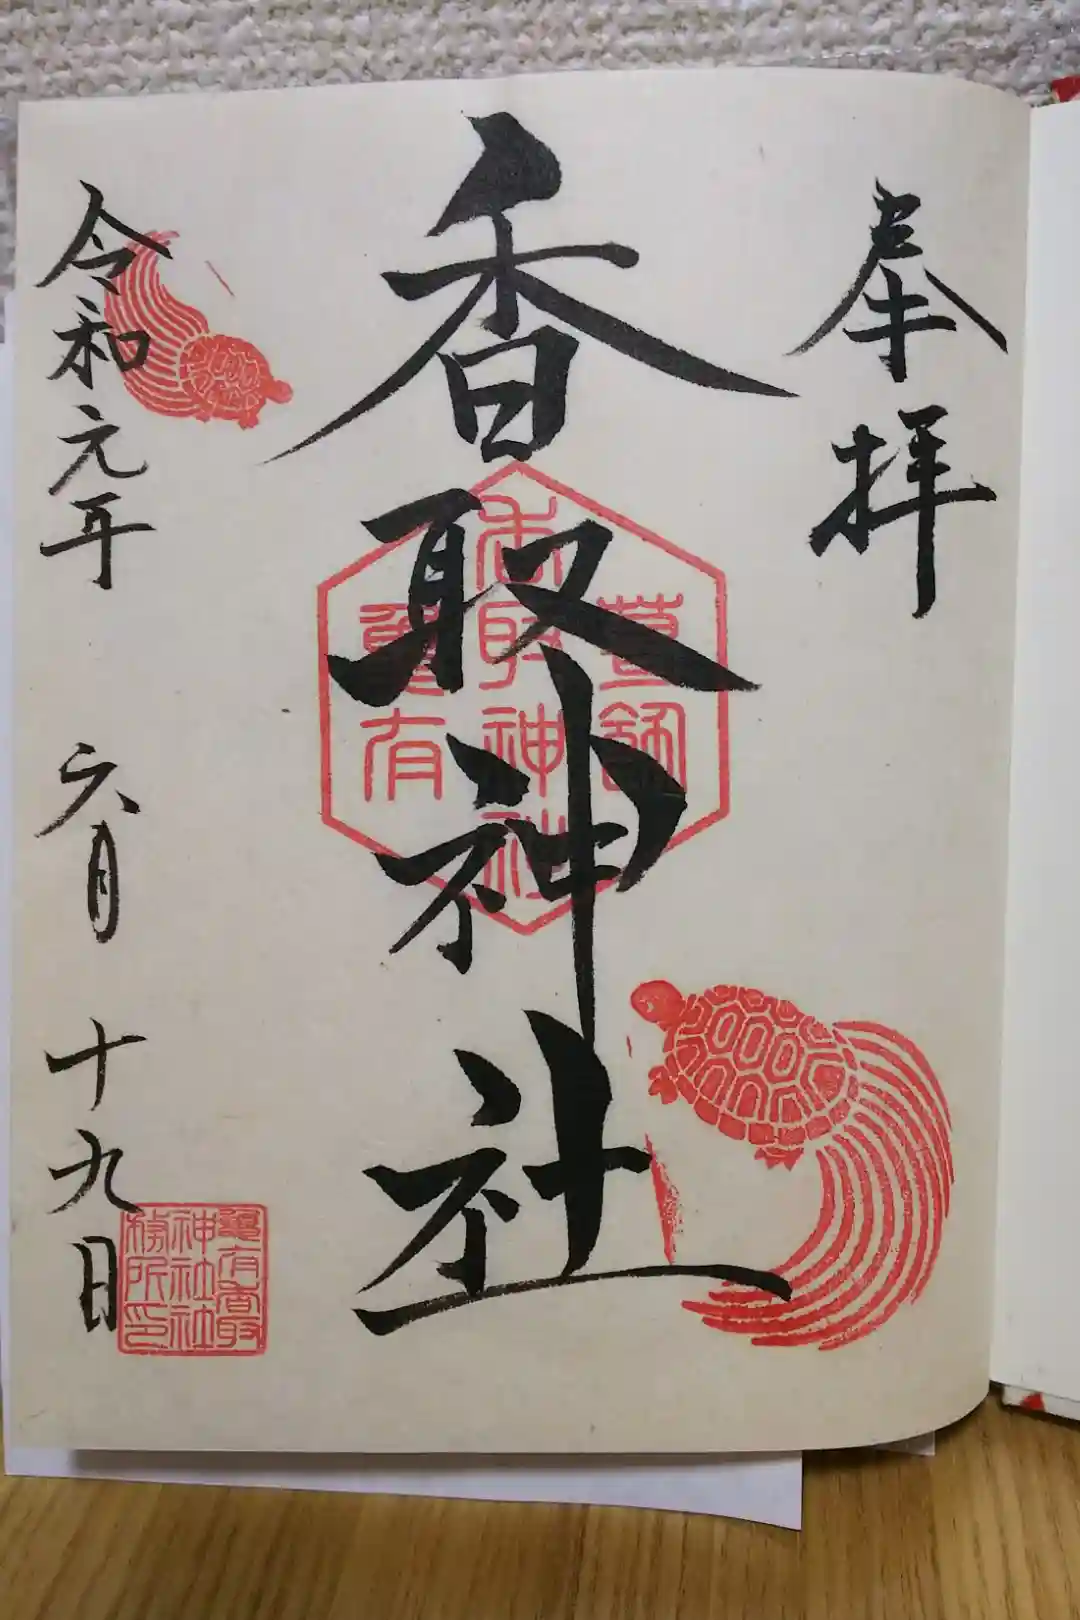 奉拝
香取神社
葛飾
香取神社
亀有
令和元年 六月 十九日
亀有香取
神社社
務所印